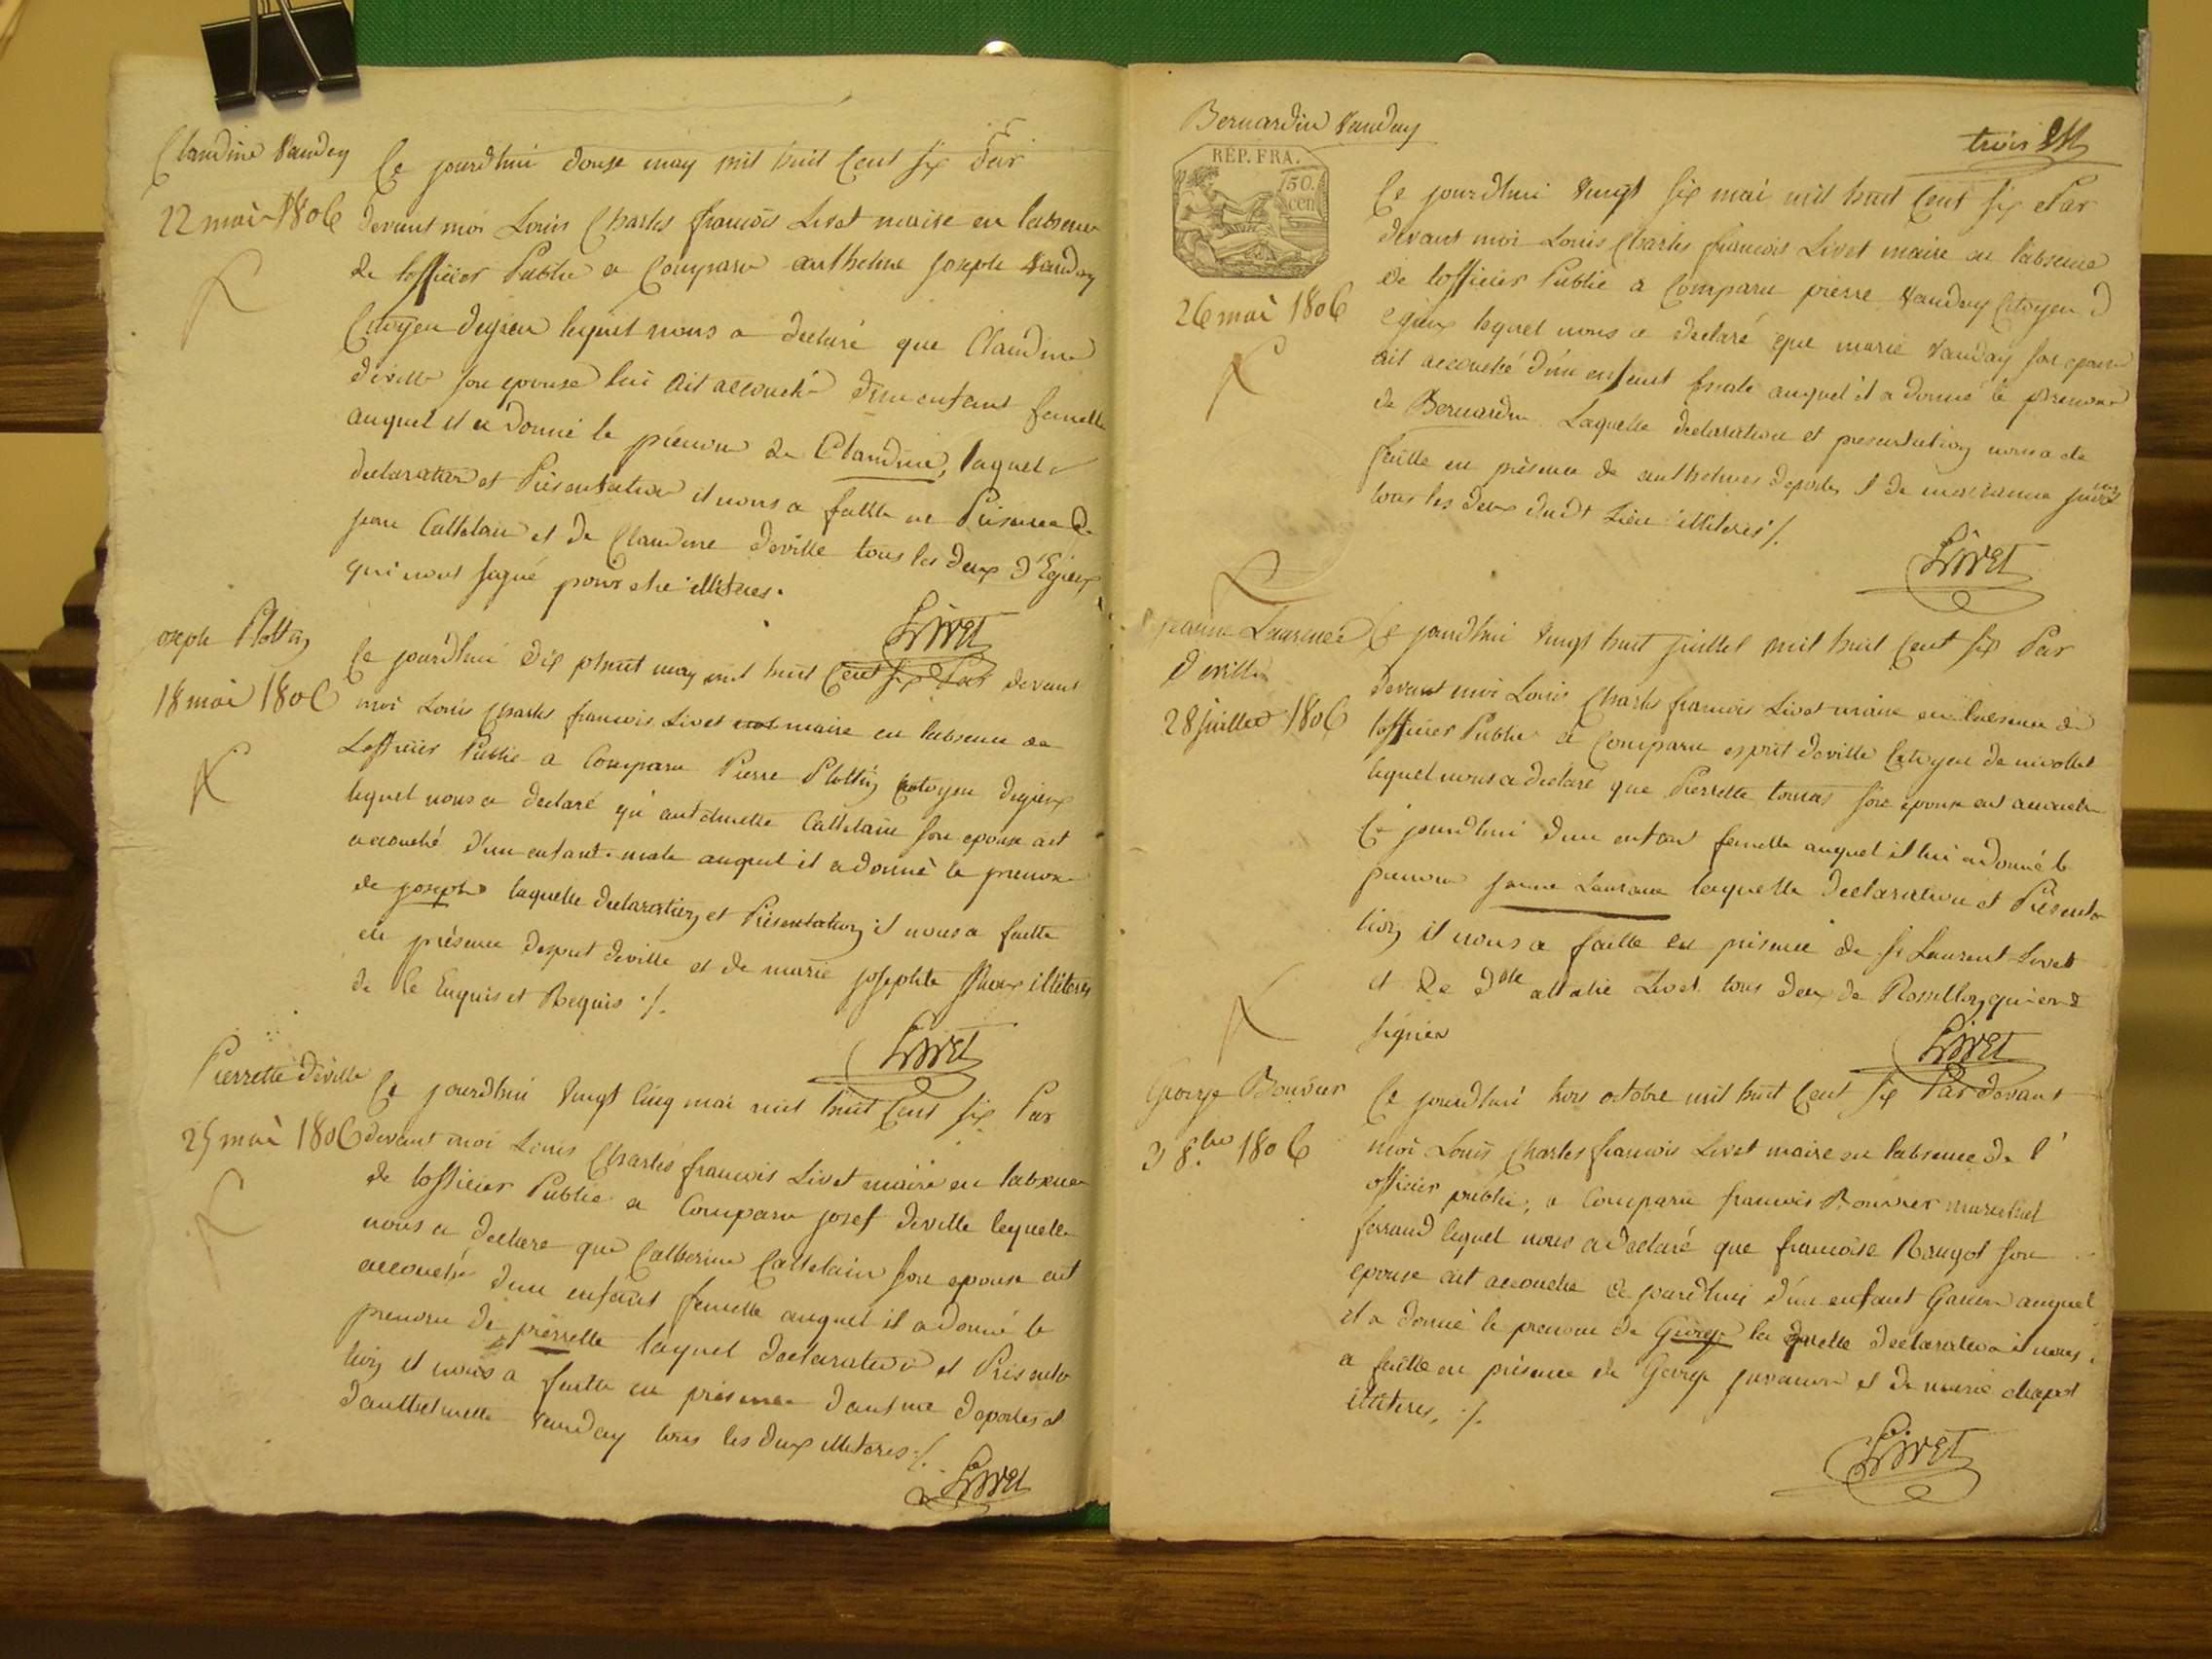 Claudine Vauday
22 mai 1806
Ce jourdhui douse may mil huit Cent six Par
devant moi Louis Charles francois Livet maire en labsence
de lofficier Public a Comparu anthelme joseph Vauday
Citoyen degieu lequel nous a declaré que Claudine
deville son epouse lui ait accouché d'un enfant femelle
auquel il a donné le prénom de Claudine, laquel
declaration et Présentation il nous a faitte en Présence de
jean Cattelain et de Claudine deville tous les deux d'Egieux
qui nont signé pour etre illiteres.
Livet
joseph Plottin
18 mai 1806
Ce jourdhui dix phuit may mil huit Cent six Par devant
moi Louis Charles francois Livet maire en labsence de
Lofficier Public a Comparu Pierre Plottin Citoyen degieux
lequel nous a declaré qu' anthelmette Cattelain son epouse ait
accouché d'un enfant male auquel il a donné le prenom
de joseph laquelle declaration et Présentation il nous a faitte
en présence desprit deville et de marie josephte illiteres
de le Enquis et Requis ./.
Livet
Pierrette deville
25 mai 1806
Ce jourdhui vingt Cinq mai mil huit Cent six Par
devant moi Louis Charles francois Livet maire en labsence
de lofficier Public a Comparu josef deville lequelle
nous a declaré que Catherine Cattelain son epouse ait
accouché d'un enfant femelle auquel il a donné le
prenom de pierrette laquel declaration et Présenta
tion il nous a faitte en présence dantme deportes et
danthelmette Vauday tous les deux illiteres ./.
Livet
Bernardin Vauday
trois
RÉP. FRA.
50.
cen.
26 mai 1806
Ce jourdhui vingt six mai mil huit Cent six Par
devant moi Louis Charles francois Livet maire en labsence
de lofficier Public a Comparu pierre Vauday Citoyen d
egieux lequel nous a declaré que marie Vauday son epouse
ait accouché d'un enfant male auquel il a donné le prenom
de Bernardin Laquelle declaration et presentation nous a de
faitte en présence de anthelmes deportes et de marianne
tous les deux dudt Lieu illiteres ./.
Livet
jeanne Laurence
deville
28 juillet 1806
Ce jourdhui vingt huit juillet mil huit Cent six Par
devant moi Louis Charles francois Livet maire en labsence de
lofficier Public a Comparu esprit deville Citoyen de nivollet
lequel nous a declaré que Pierrette tomas son epouse est accouché
Ce jourdhui d'un enfant femelle auquel il lui a donné le
prenom jeanne Laurance laquelle declaration et Présenta
tion il nous a faitte en présence de sr Laurent Livet
et de dlle attalie Livet tous deux de Rossillon qui ont
signés
Livet
George Bouvier
3 8.bre 1806
Ce jourdhui trois octobre mil huit Cent six Par devant
moi Louis Charles francois Livet maire en labsence de l'
officier public, a Comparu francois Bouvier marechal
ferrand lequel nous a declaré que francoise Brugot son
epouse ait accouché Ce jourdhui d'un enfant Garcon auquel
il a donné le prenom de George la quelle declaration il nous
a faitte en présence de George juvanon et de marie chapot
illiteres, ./.
Livet